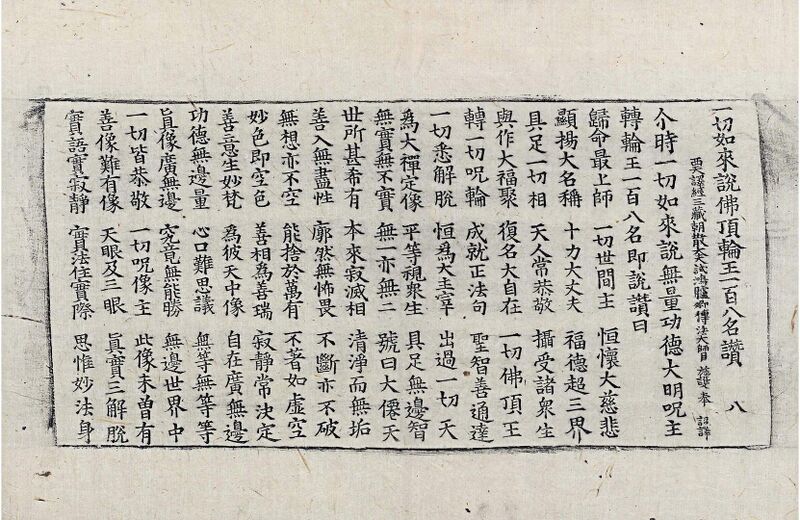 一切如來說佛頂輪王一百八名讚 八
西天譯經三藏朝散大夫試鴻臚卿傳法大師臣施護奉 詔譯
尒時一切如來說無量功德大明呪主
轉輪王一百八名即說讚曰
歸命最上師 一切世間主 恒懷大慈悲
顯揚大名稱 十力大丈夫 福德超三界
具足一切相 天人常恭敬 攝受諸衆生
與作大福聚 復名大自在 一切佛頂王
轉一切呪輪 成就正法句 聖智善通達
一切悉解脫 恒為大主宰 出過一切天
為大禪定像 平等視衆生 具足無邊智
無實無不實 無一亦無二 號曰大僊天
世所甚希有 本來寂滅相 清淨而無垢
善入無盡性 廓然無怖畏 不斷亦不破
無想亦不空 能捨於萬有 不著如虛空
妙色即空色 善相為善瑞 寂靜常決定
善意生妙梵 為彼天中像 自在廣無邊
功德無邊量 心口難思議 無等無等等
眞像廣無邊 究竟無能勝 無邊世界中
一切皆恭敬 一切呪像主 此像未曾有
善像難有像 天眼及三眼 眞實三解脫
實語實寂靜 實法住實際 思惟妙法身